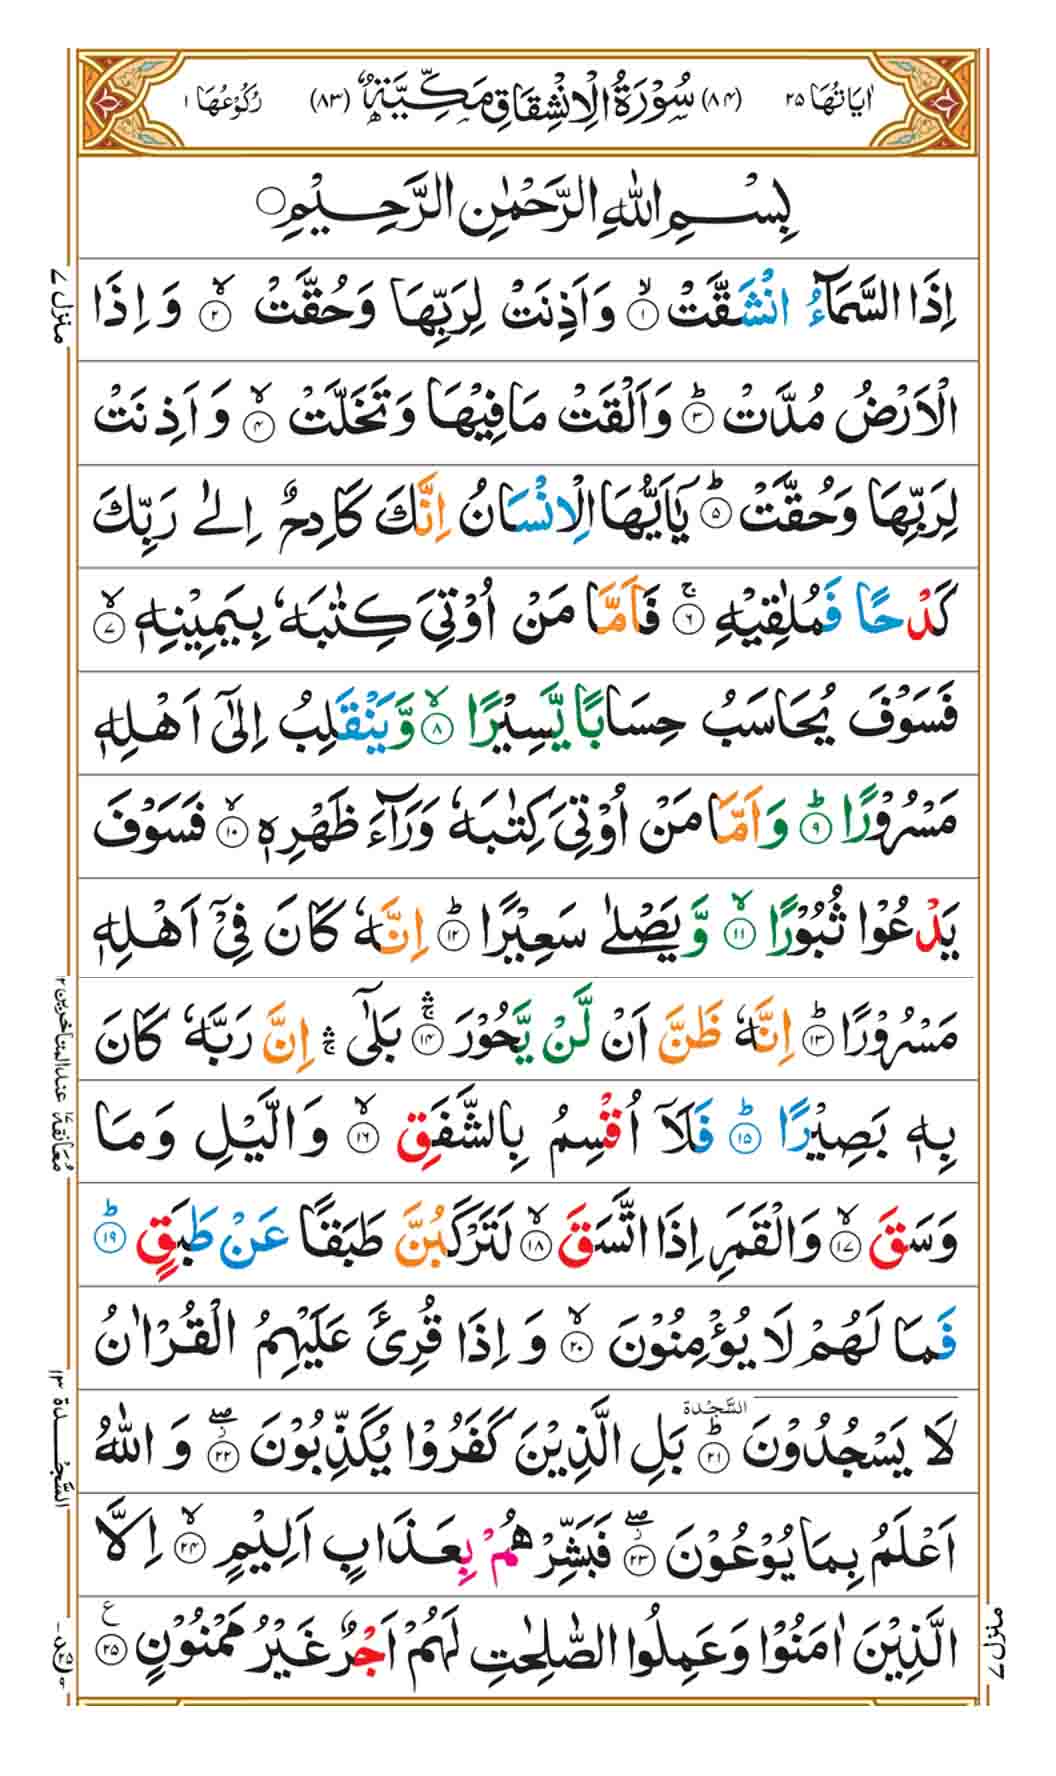 اٰيَاتُهَا ٢٥ (٨٤) سُوْرَةُ الْاِنْشِقَاقِ مَكِّيَّةٌ (٨٣) رُكُوْعُهَا ١
بِسْمِ اللّٰهِ الرَّحْمٰنِ الرَّحِيْمِ
اِذَا السَّمَآءُ انْشَقَّتْ ۙ‏﴿۱﴾ وَاَذِنَتْ لِرَبِّهَا وَحُقَّتْ ۙ‏﴿۲﴾ وَ اِذَا
الْاَرْضُ مُدَّتْ ؕ‏﴿۳﴾ وَاَلْقَتْ مَا فِيْهَا وَتَخَلَّتْ ۙ‏﴿۴﴾ وَ اَذِنَتْ
لِرَبِّهَا وَحُقَّتْ ؕ‏﴿۵﴾ يٰۤاَيُّهَا الْاِنْسَانُ اِنَّكَ كَادِحٌ اِلٰى رَبِّكَ
كَدْحًا فَمُلٰقِيْهِ ۚ‏﴿۶﴾ فَاَمَّا مَنْ اُوْتِىَ كِتٰبَهٗ بِيَمِيْنِهٖ ۙ‏﴿۷﴾
فَسَوْفَ يُحَاسَبُ حِسَابًا يَّسِيْرًا ۙ‏﴿۸﴾ وَّيَنْقَلِبُ اِلٰٓى اَهْلِهٖ
مَسْرُوْرًا ؕ‏﴿۹﴾ وَاَمَّا مَنْ اُوْتِىَ كِتٰبَهٗ وَرَآءَ ظَهْرِهٖ ۙ‏﴿۱۰﴾ فَسَوْفَ
يَدْعُوْا ثُبُوْرًا ۙ‏﴿۱۱﴾ وَّيَصْلٰى سَعِيْرًا ؕ‏﴿۱۲﴾ اِنَّهٗ كَانَ فِىْۤ اَهْلِهٖ
مَسْرُوْرًا ؕ‏﴿۱۳﴾ اِنَّهٗ ظَنَّ اَنْ لَّنْ يَّحُوْرَ ۛۚ‏﴿۱۴﴾ بَلٰٓى ۛۚ اِنَّ رَبَّهٗ كَانَ
بِهٖ بَصِيْرًا ؕ‏﴿۱۵﴾ فَلَاۤ اُقْسِمُ بِالشَّفَقِ ۙ‏﴿۱۶﴾ وَالَّيْلِ وَمَا
وَسَقَ ۙ‏﴿۱۷﴾ وَالْقَمَرِ اِذَا اتَّسَقَ ۙ‏﴿۱۸﴾ لَتَرْكَبُنَّ طَبَقًا عَنْ طَبَقٍ ؕ‏﴿۱۹﴾
فَمَا لَهُمْ لَا يُؤْمِنُوْنَ ۙ‏﴿۲۰﴾ وَ اِذَا قُرِئَ عَلَيْهِمُ الْقُرْاٰنُ
لَا يَسْجُدُوْنَ ؕ‏﴿۲۱﴾ السَّجْدَة بَلِ الَّذِيْنَ كَفَرُوْا يُكَذِّبُوْنَ ۖ‏﴿۲۲﴾ وَ اللّٰهُ
اَعْلَمُ بِمَا يُوْعُوْنَ ۖ‏﴿۲۳﴾ فَبَشِّرْهُمْ بِعَذَابٍ اَلِيْمٍ ۙ‏﴿۲۴﴾ اِلَّا
الَّذِيْنَ اٰمَنُوْا وَعَمِلُوا الصّٰلِحٰتِ لَهُمْ اَجْرٌ غَيْرُ مَمْنُوْنٍ ‏﴿۲۵﴾ ع
منزل ٧
معانقة عند المتاخرين ١٢
السَّجْدة ١٣
منزل ٧